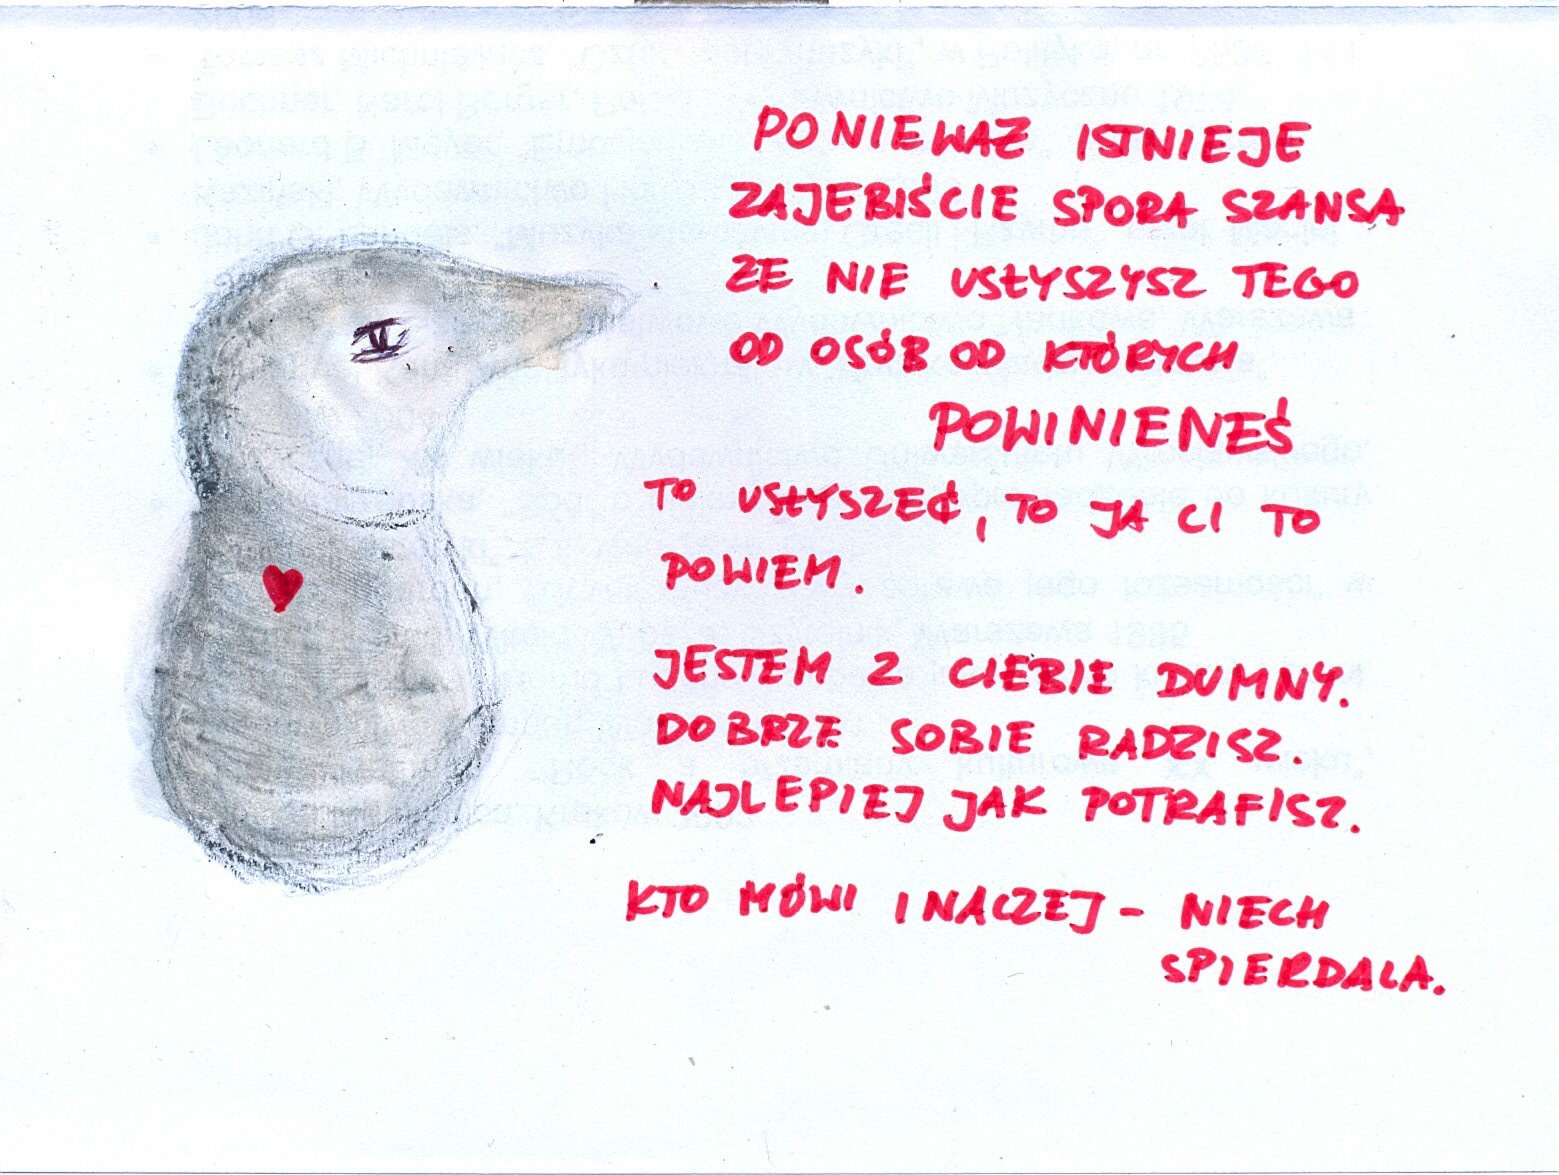 PONIEWAŻ ISTNIEJE
ZAJEBIŚCIE SPORA SZANSA
ŻE NIE USŁYSZYSZ TEGO
OD OSÓB OD KTÓRYCH
POWINIENEŚ
TO USŁYSZEĆ, TO JA CI TO
POWIEM.
JESTEM Z CIEBIE DUMNY.
DOBRZE SOBIE RADZISZ.
NAJLEPIEJ JAK POTRAFISZ.
KTO MÓWI INACZEJ - NIECH
SPIERDALA.